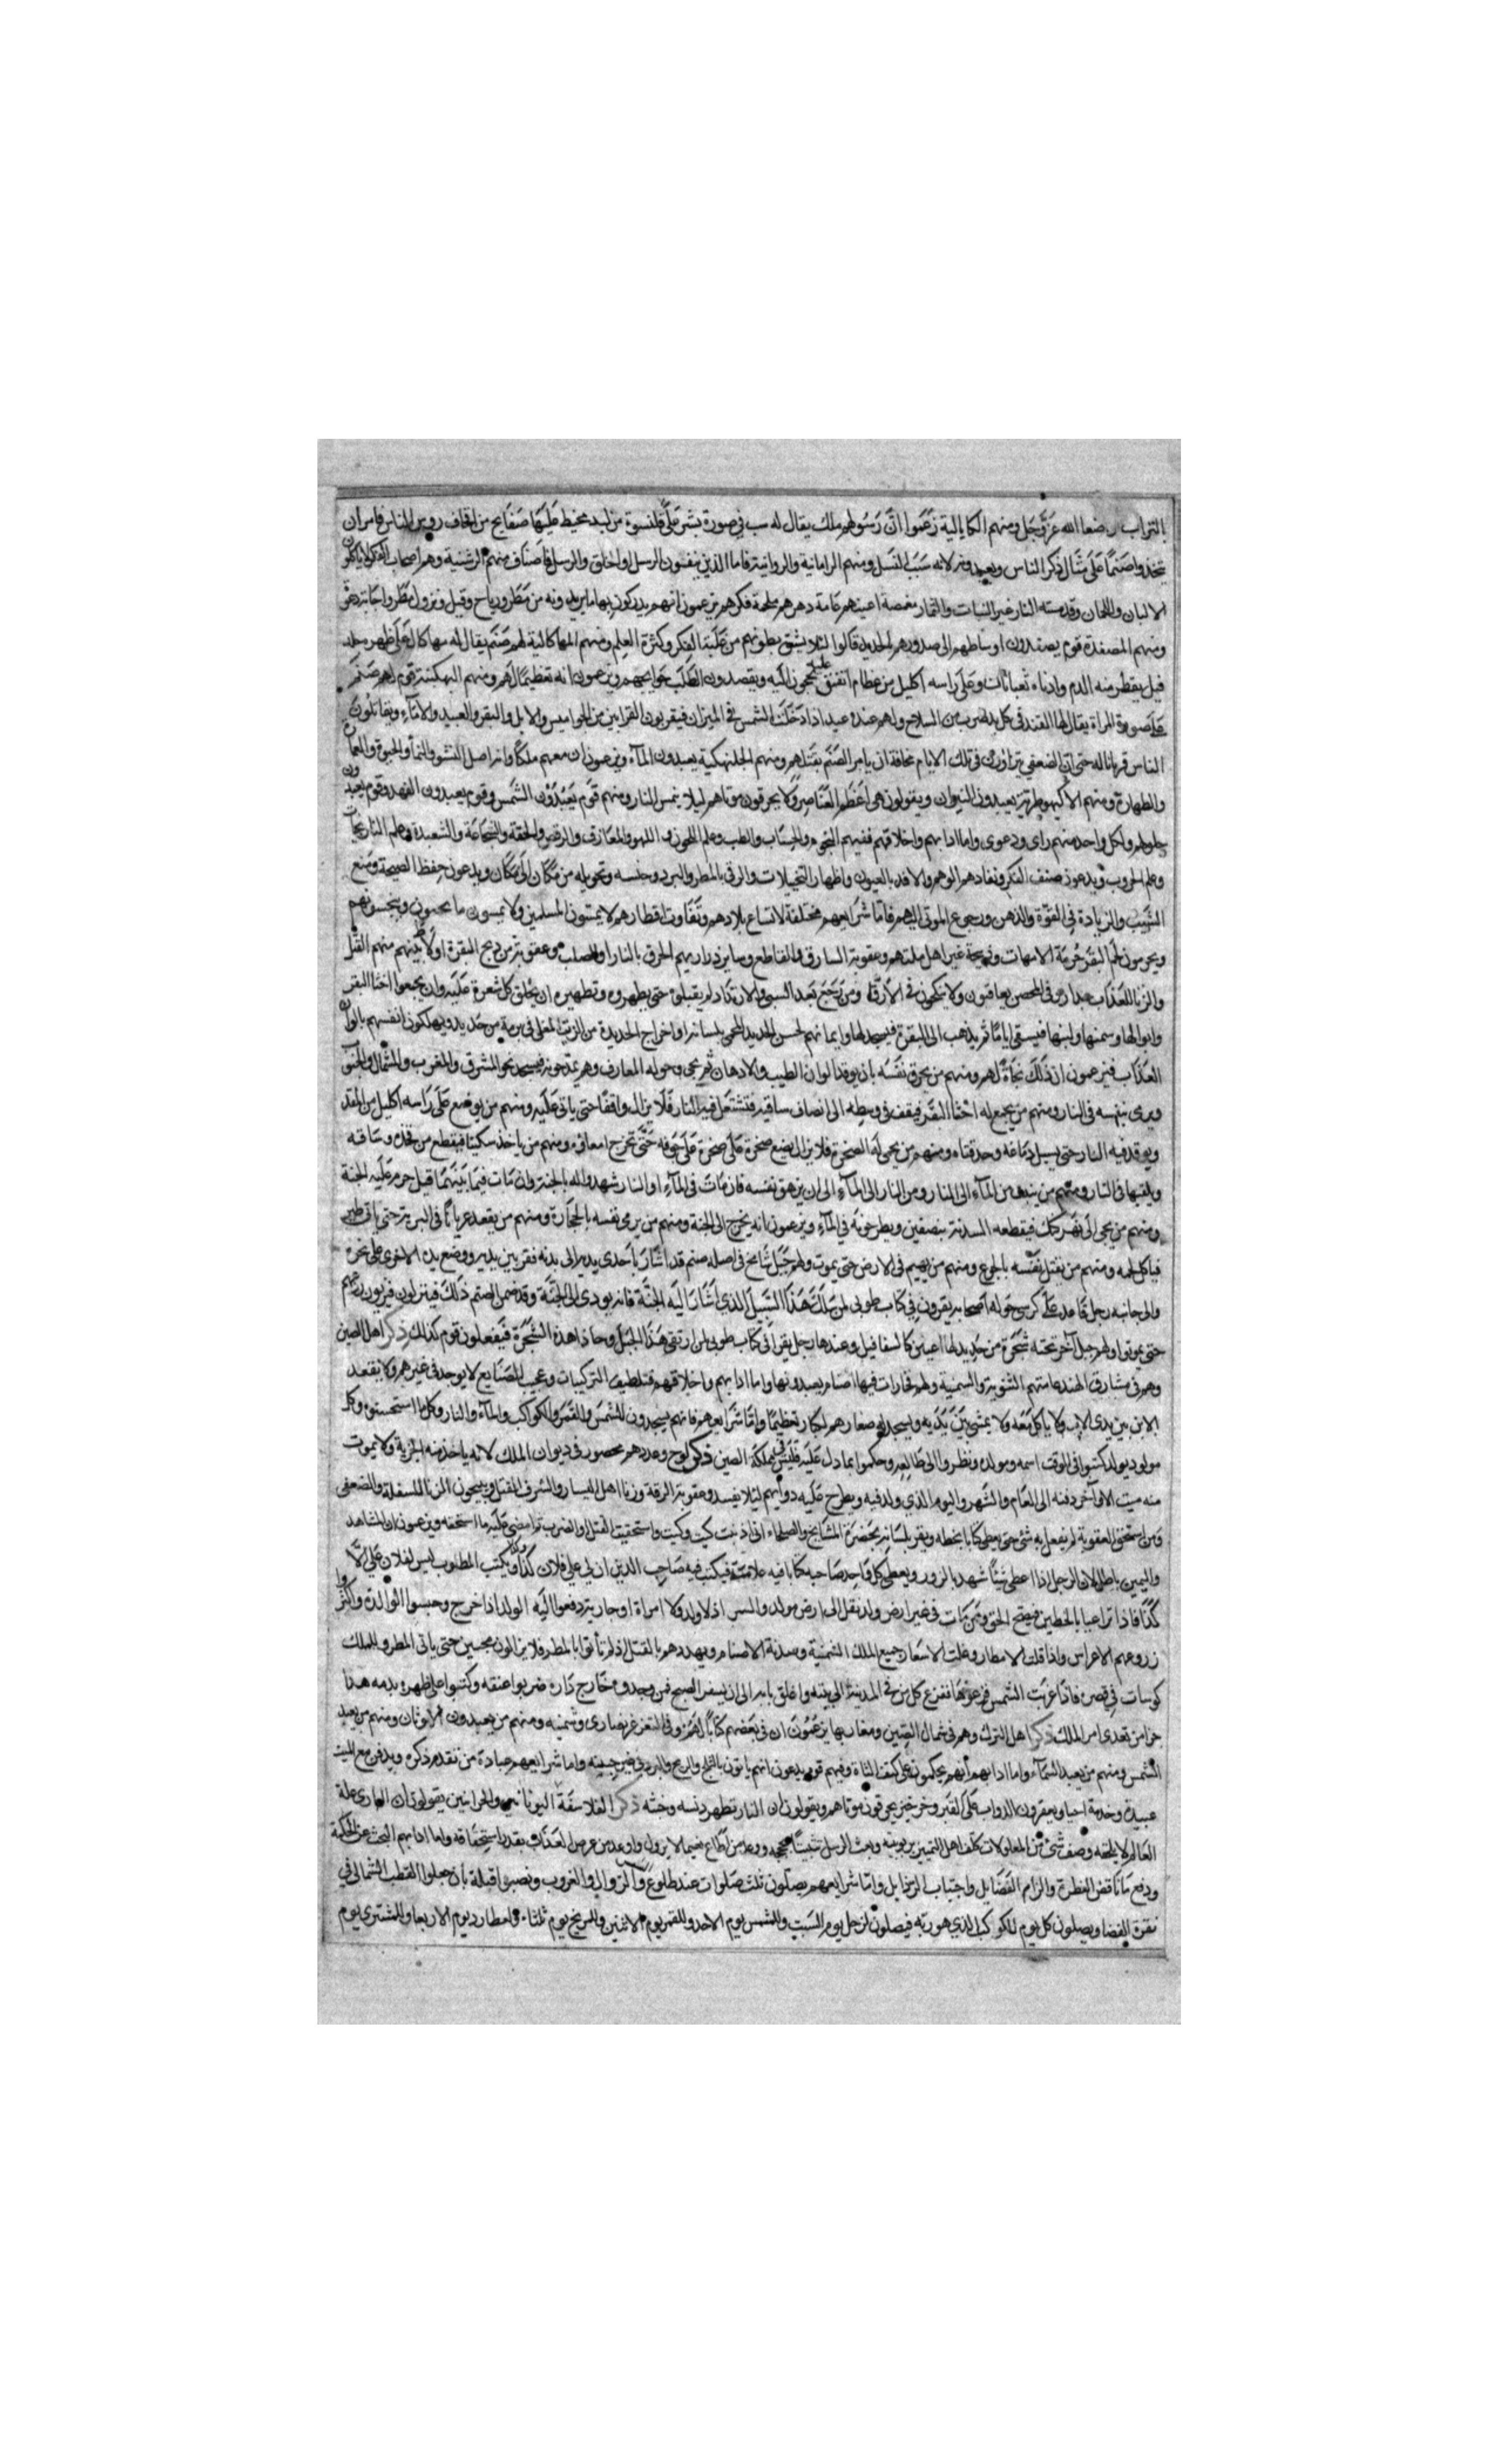 بالتراب رضعا الله عز وجل ومنهم الكابالية زعموا ان رسولهم ملك يقال له سب في صورة بشر على قلنسوة من لبد محيط عليها صفايح من اقحاف رؤس الناس فامر ان
يتخذوا صنما على مثال ذكر الناس ويعبدونه لانه سبب النسل ومنهم الرامانية والروانية فاما الذين ينفون الرسل او الخلق والرسل فاصناف منهم الرشنية وهم اصحاب الفكر لا ياكلون
الالبان واللحمان وقد مسته النار غير النبات والثمار مغمضة اعينهم عامة دهرهم ملحة فكرهم يزعمون انهم يدركون بها ما يريدونه من مطر ورياح وقيل ونزول مطر
ومنهم المصفدة قوم يصفدون اوساطهم الى صدورهم الحديد قالوا لئلا ينشق بطونهم من غلبة الفكر وكثرة العلم ومنهم المهاكالية لهم صنم يقال له مهاكال على ظهره جلد
فيل يقطر منه الدم وادناه ثعبانان وعلى راسه اكليل من عظام يحجون اليه ويقصدون لطلب حوايجهم ويزعمون انه تعظيما لهم ومنهم قوم لهم صنم
على صورة المراة يقال لها في كل يد ضرب من السلاح ولهم عنده عيد اذا دخلت الشمس في الميزان فيقربون القرابين من الجواميس والابل والبقر والعبيد والاماء ويقاتلون
الناس قربانا له حتى ان الضعفى في تلك الايام مخافة ان يامر الصنم بقتلهم ومنهم الجلبهكية يعبدون الماء ويزعمون ان معهم ملكا وانه اصل النشو والنما والحيوة والعمارة
والطهارة ومنهم يعبدون النيران ويقولون هي اعظم العناصر ولا يحرقون موتاهم لئلا ينجس النار ومنهم قوم يعبدون الشمس وقوم يعبدون الفهد وقوم يعبدون
ملوكهم ولكل واحد منهم راى ودعوى واما ادابهم واخلاقهم ففيهم النجوم والحساب والطب وعلم اللحون واللهو والمعازف والرقص والخفة والشجاعة والشعبدة وعلم النارنجات
وعلم الحروب ويدعون صنف الفكر ونفاذهم الوهم والافة بالعيون واظهار التخييلات والرقى بالمطر والبرد وحبسه وتحويله من مكان الى مكان ويدعون حفظ الصحة ومنع
الشيب والزيادة في القوة والذهن ورجوع الموتى اليهم فاما شرايعهم مختلفة لاتساع بلادهم وتفاوت اقطارهم لا يمسون المسلمين ولا يمسون ما يمسون وينجسونهم
ويحرمون لحم البقر حرمة الامهات وذبيحة غير اهل ملتهم وعقوبة السارق والقاطع وساير ذراريهم الحرق بالنار او الصلب وعقوبة من ذبح البقرة منهم القتل
والزنا للعذاب مباح وفي المحصن يعاقبون ولا ينكحون في الارقاء ومن رجع بعد السبى والارتداد لم يقبلوه حتى يطهروه وتطهيره ان يحلق كل شعرة عليه وان يجمعوا اخثا البقر
وابوالها وسمنها ولبنها فيسقى اياما ثم يذهب الى البقرة فيسجد لها وايمانهم لحس الحديد المحمى بلسانه او اخراج الحديدة من الزيت المغلي في برمة من حديد ويهلكون انفسهم بالوان
العذاب فيزعمون ان ذلك نجاة لهم ومنهم من يحرق نفسه بان يوقد الوان الطيب والادهان ثم يجى وحوله المعازف وهم يمدحونه فيسجد نحو المشرق والمغرب والشمال والجنوب
ويرمى بنفسه في النار ومنهم من يجمع له اخثا البقر فيقف في وسطه الى انصاف ساقيه فتشتعل فيه النار فلا يزال واقفا حتى ياتى عليه ومنهم من يوضع على راسه اكليل من المقل
ويوقد فيه النار حتى يسيل دماغه وحدقتاه ومنهم من يحمى له الصخرة فلا يزال يضع صخرة على صخرة على جوفه حتى تخرج امعاؤه ومنهم من ياخذ سكينا فيقطع من فخذه وساقه
ويلقيها في النار ومنهم من ينبعث من الماء الى النار ومن النار الى الماء الى ان يزهق نفسه فان مات في الماء او النار شهدوا له بالجنة وان مات فيما بينهما قيل حرم عليه الجنة
ومنهم من يجى الى نهر كنك فيقطعه السدنة بنصفين ويطرحونه في الماء ويزعمون انه يخرج الى الجنة ومنهم من يرمى نفسه بالحجارة ومنهم من يقعد عريانا في البرية حتى ياتى طير
فياكل لحمه ومنهم من يقتل نفسه بالجوع ومنهم من يهيم في الارض حتى يموت ولهم جبل شامخ في اصله صنم قد اشار باحدى يديه الى بدنه فقربين يديه ووضع يده الاخرى على نحره
والى جانبه رجل قاعد على كرسى حوله اصحابه يقرؤن في كتاب طوبى لمن سلك هذا السبيل الذي اشار اليه الجنة فانه يودى الى الجنة وقد ضمن الصنم ذلك فينزلون
حتى يموتوا ولهم جبل اخر تحته شجرة من حديد لها اعين كالسفافيد وعندها رجل يقرا في كتاب طوبى لمن ارتقى هذا الجبل وحاذا هذه الشجرة فيفعلون قوم كذلك ذكر اهل الصين
وهم في مشارق الهند عامتهم الثنوية والسمنية ولهم فخارات فيها اصنام يعبدونها واما ادابهم واخلاقهم فتلطيف التركيبات وعجيب الصنايع لا يوجد في غيرهم ولا يقعد
الابن بين يدى الاب ولا ياكل معه ولا يمشى بين يديه ويسجد له صغارهم لكبار تعظيما واما شرايعهم فانهم يسجدون للشمس والقمر والكواكب والماء والنار وكل ما استحسنوه وكل
مولود يولد كتبوا في الوقت اسمه ومولده ونظروا الى طالعه وحكموا بما دل عليه فليس في مملكة الصين ذكر وعددهم محصور في ديوان الملك لانه ياخذ منه الجزية ولا يموت
منه ميت الا واخر دفنه الى العام والشهر واليوم الذي ولد فيه ويطرح عليه دوا لئلا يفسد وعقوبة السرقة وزنا اهل اليسار والشرف القتل ويبيحون الزنا للسفلة والضعفى
ومن استحق العقوبة لم يفعل به شئ حتى يعطى كتابا بخطه ويقر بلسانه بحضرة المشايخ والصلحاء انى اذنبت كيت وكيت واستحقيت القتل او الضرب ثم امضى عليه ما استحقه ويزعمون ان الشاهد
واليمين باطل لان الرجل اذا اعطى شيئا شهد بالزور ويعطى كل واحد صاحبه كتابا فيه علامته فيكتب فيه صاحب الدين ان لي على فلان كذا وكذا ويكتب المطلوب ليس لفلان علي الا
كذا فاذا تداعيا بالخطين فيصح الحق ومن مات في غير ارض ولد نقل الى ارض مولده والسر اذ لا ولد ولا امراة او جارية دفعوا اليه الولد اذا خرج وحبسوا الوالدة واكثروا
زروعهم الاعراس واذا قلت الامطار وغلت الاسعار جمع الملك الشمنية وسدنة الاصنام ويهددهم بالقتل اذ لم ياتوا بالمطر فلا يزالون محبسين حتى ياتى المطر وللملك
كوسات في قصره فاذا غربت الشمس ضربوها فتفزع كل من في المدينة الى بيته واغلق بابه الى ان يسفر الصبح فمن وجدوه خارج داره ضربوا عنقه وكتبوا على ظهره بدمه هذا
جزا من تعدى امر الملك ذكر اهل الترك وهم في شمال الصين ومغاربها يزعمون ان في بعضهم كتابا لهم وفي التغزغز نصارى وشمنية ومنهم من يعبدون الاوثان ومنهم من يعبد
الشمس ومنهم من يعبد السماء واما ادابهم انهم يحكمون على كتف الشاة وفيهم قوم يدعون انهم ياتون بالثلج والريح والبرد في غير حينه واما شرايعهم عبادة من تقدم ذكره ويدفن مع الميت
عبيده وخدمه احيا ويعقرون الدواب على القبر وخرخيز يحرقون موتاهم ويقولون ان النار تطهر دنسه وخبثه ذكر الفلاسفة اليونانيين والحرانيين يقولون ان البارى علة
العالم لا يلحقه وصف شئ من المعلولات كلف اهل التمييز بربوبيته وبعث الرسل تثبيتا لحججه ووعد من اطاع نعيما لا يزول واوعد من عصى العذاب بقدر استحقاقه واما ادابهم البحث عن الحكمة
ودفع ما ناقض الفطرة والزام الفضايل واجتناب الرذايل واما شرايعهم يصلون ثلث صلوات عند طلوع والزوال والغروب ونصبوا قبلة بان جعلوا القطب الشمالي في
نقرة القفا ويصلون كل يوم للكوكب الذي هو ربه فيصلون لزحل يوم السبت وللشمس يوم الاحد وللقمر يوم الاثنين وللمريخ يوم ثلثاء ولعطارد يوم الاربعا وللمشترى يوم